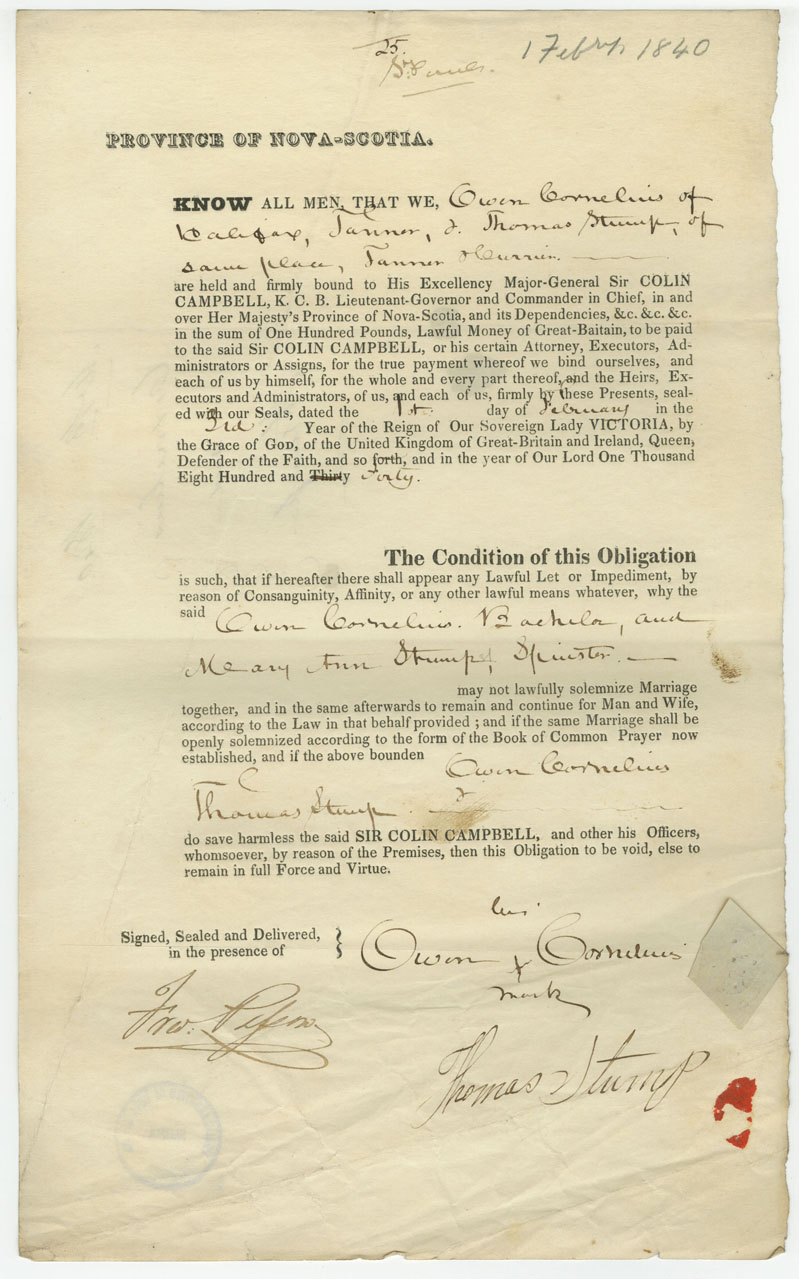 25.
1 Feby. 1840
PROVINCE OF NOVA-SCOTIA.
KNOW ALL MEN, THAT WE, Owen Cornelius of
Halifax, Tanner, & Thomas Stump, of
same place, Tanner & Currier.
are held and firmly bound to His Excellency Major-General Sir COLIN
CAMPBELL, K. C. B. Lieutenant-Governor and Commander in Chief, in and
over Her Majesty's Province of Nova-Scotia, and its Dependencies, &c. &c. &c.
in the sum of One Hundred Pounds, Lawful Money of Great-Baitain, to be paid
to the said Sir COLIN CAMPBELL, or his certain Attorney, Executors, Ad-
ministrators or Assigns, for the true payment whereof we bind ourselves, and
each of us by himself, for the whole and every part thereof, and the Heirs, Ex-
ecutors and Administrators, of us, and each of us, firmly by these Presents, seal-
ed with our Seals, dated the 1st. day of February in the
3rd: Year of the Reign of Our Sovereign Lady VICTORIA, by
the Grace of GOD, of the United Kingdom of Great-Britain and Ireland, Queen,
Defender of the Faith, and so forth, and in the year of Our Lord One Thousand
Eight Hundred and Thirty Forty.
The Condition of this Obligation
is such, that if hereafter there shall appear any Lawful Let or Impediment, by
reason of Consanguinity, Affinity, or any other lawful means whatever, why the
said Owen Cornelius. Bachelor, and
Mary Ann Stump, Spinster.
may not lawfully solemnize Marriage
together, and in the same afterwards to remain and continue for Man and Wife,
according to the Law in that behalf provided ; and if the same Marriage shall be
openly solemnized according to the form of the Book of Common Prayer now
established, and if the above bounden Owen Cornelius
& Thomas Stump.
do save harmless the said SIR COLIN CAMPBELL, and other his Officers,
whomsoever, by reason of the Premises, then this Obligation to be void, else to
remain in full Force and Virtue.
Signed, Sealed and Delivered,
in the presence of
his
Owen X Cornelius
mark
Thomas Stump